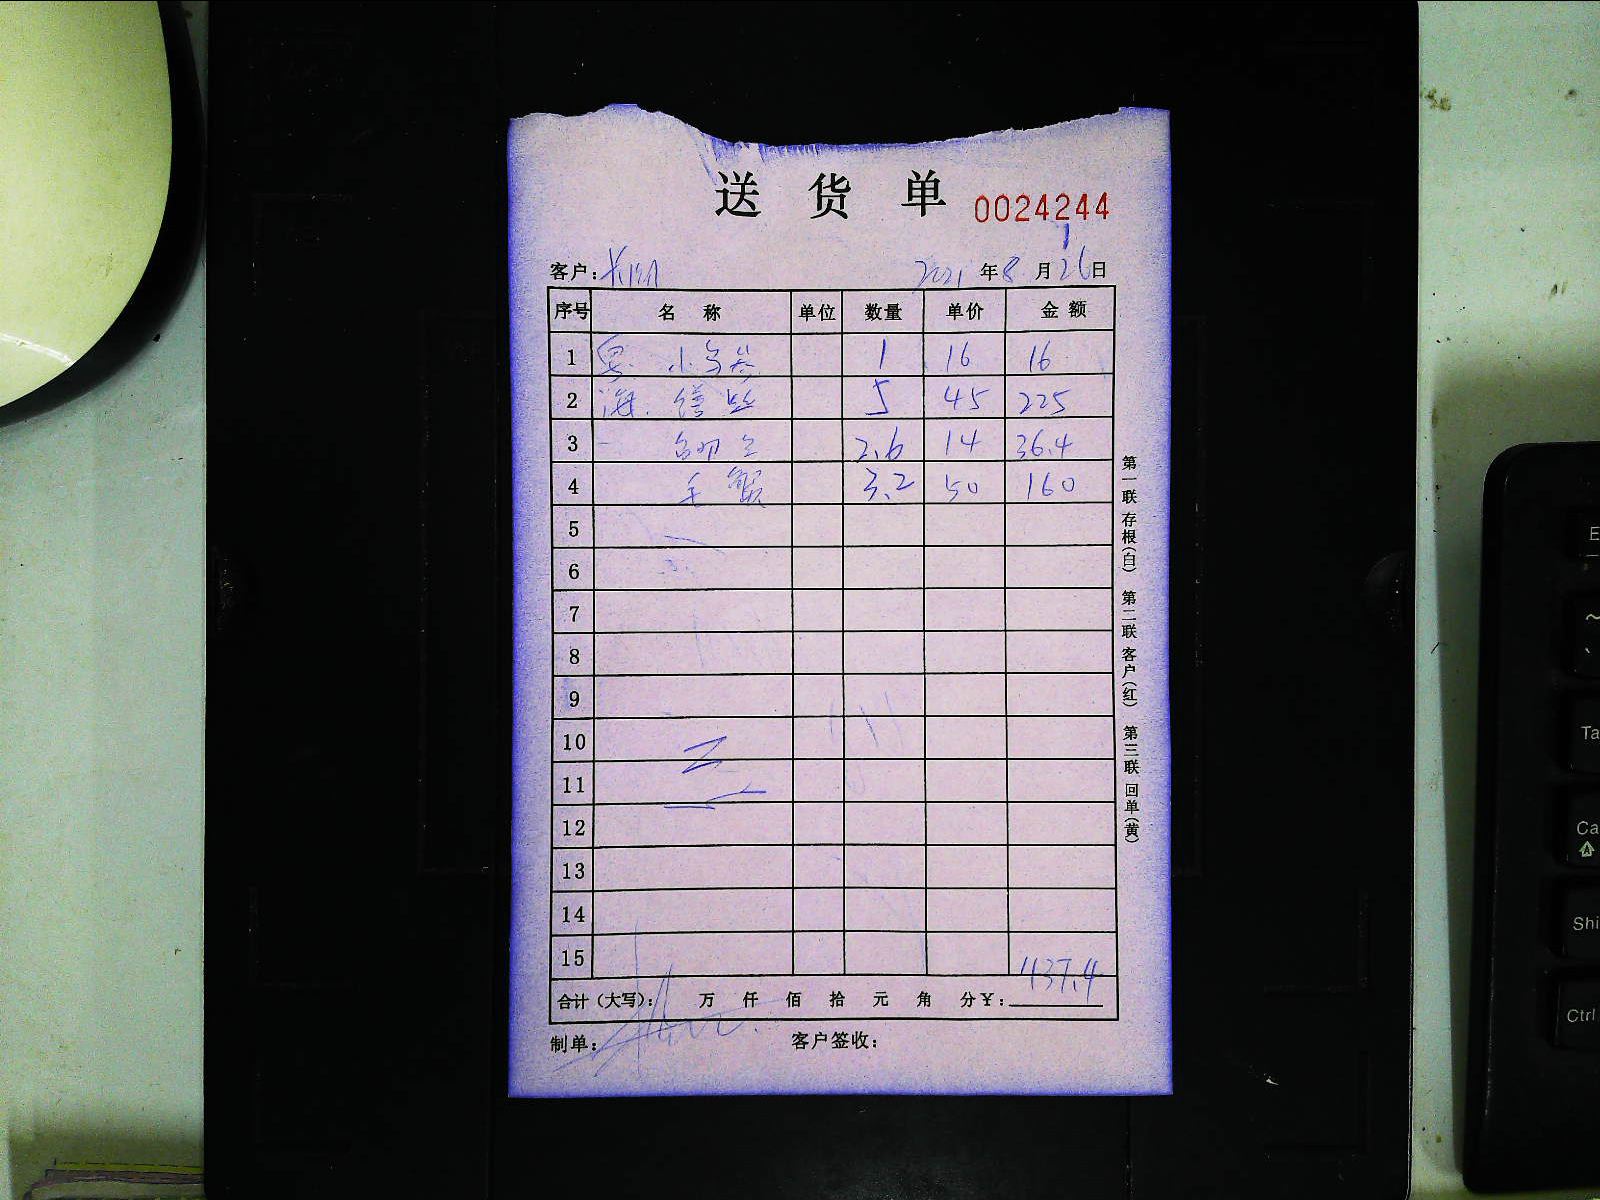 送货单 0024244
客户: 2021年8月26日
序号 名称 单位 数量 单价 金额
1 1 16 16
2 5 45 225
3 2.6 14 36.4
4 毛蟹 3.2 50 160
5
6
7
8
9
10
11
12
13
14
15
437.4
合计(大写): 万 仟 佰 拾 元 角 分¥:
制单: 客户签收:
第一联 存根(白) 第二联 客户(红) 第三联 回单(黄)
E
~
Ta
Ca
Shi
Ctrl